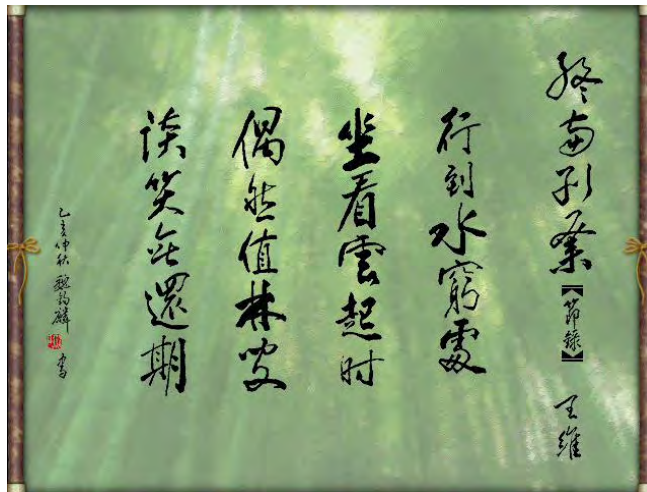 终南别業【節錄】 王維
行到水窮處
坐看雲起时
偶然值林叟
談笑無還期
乙亥仲秋 書